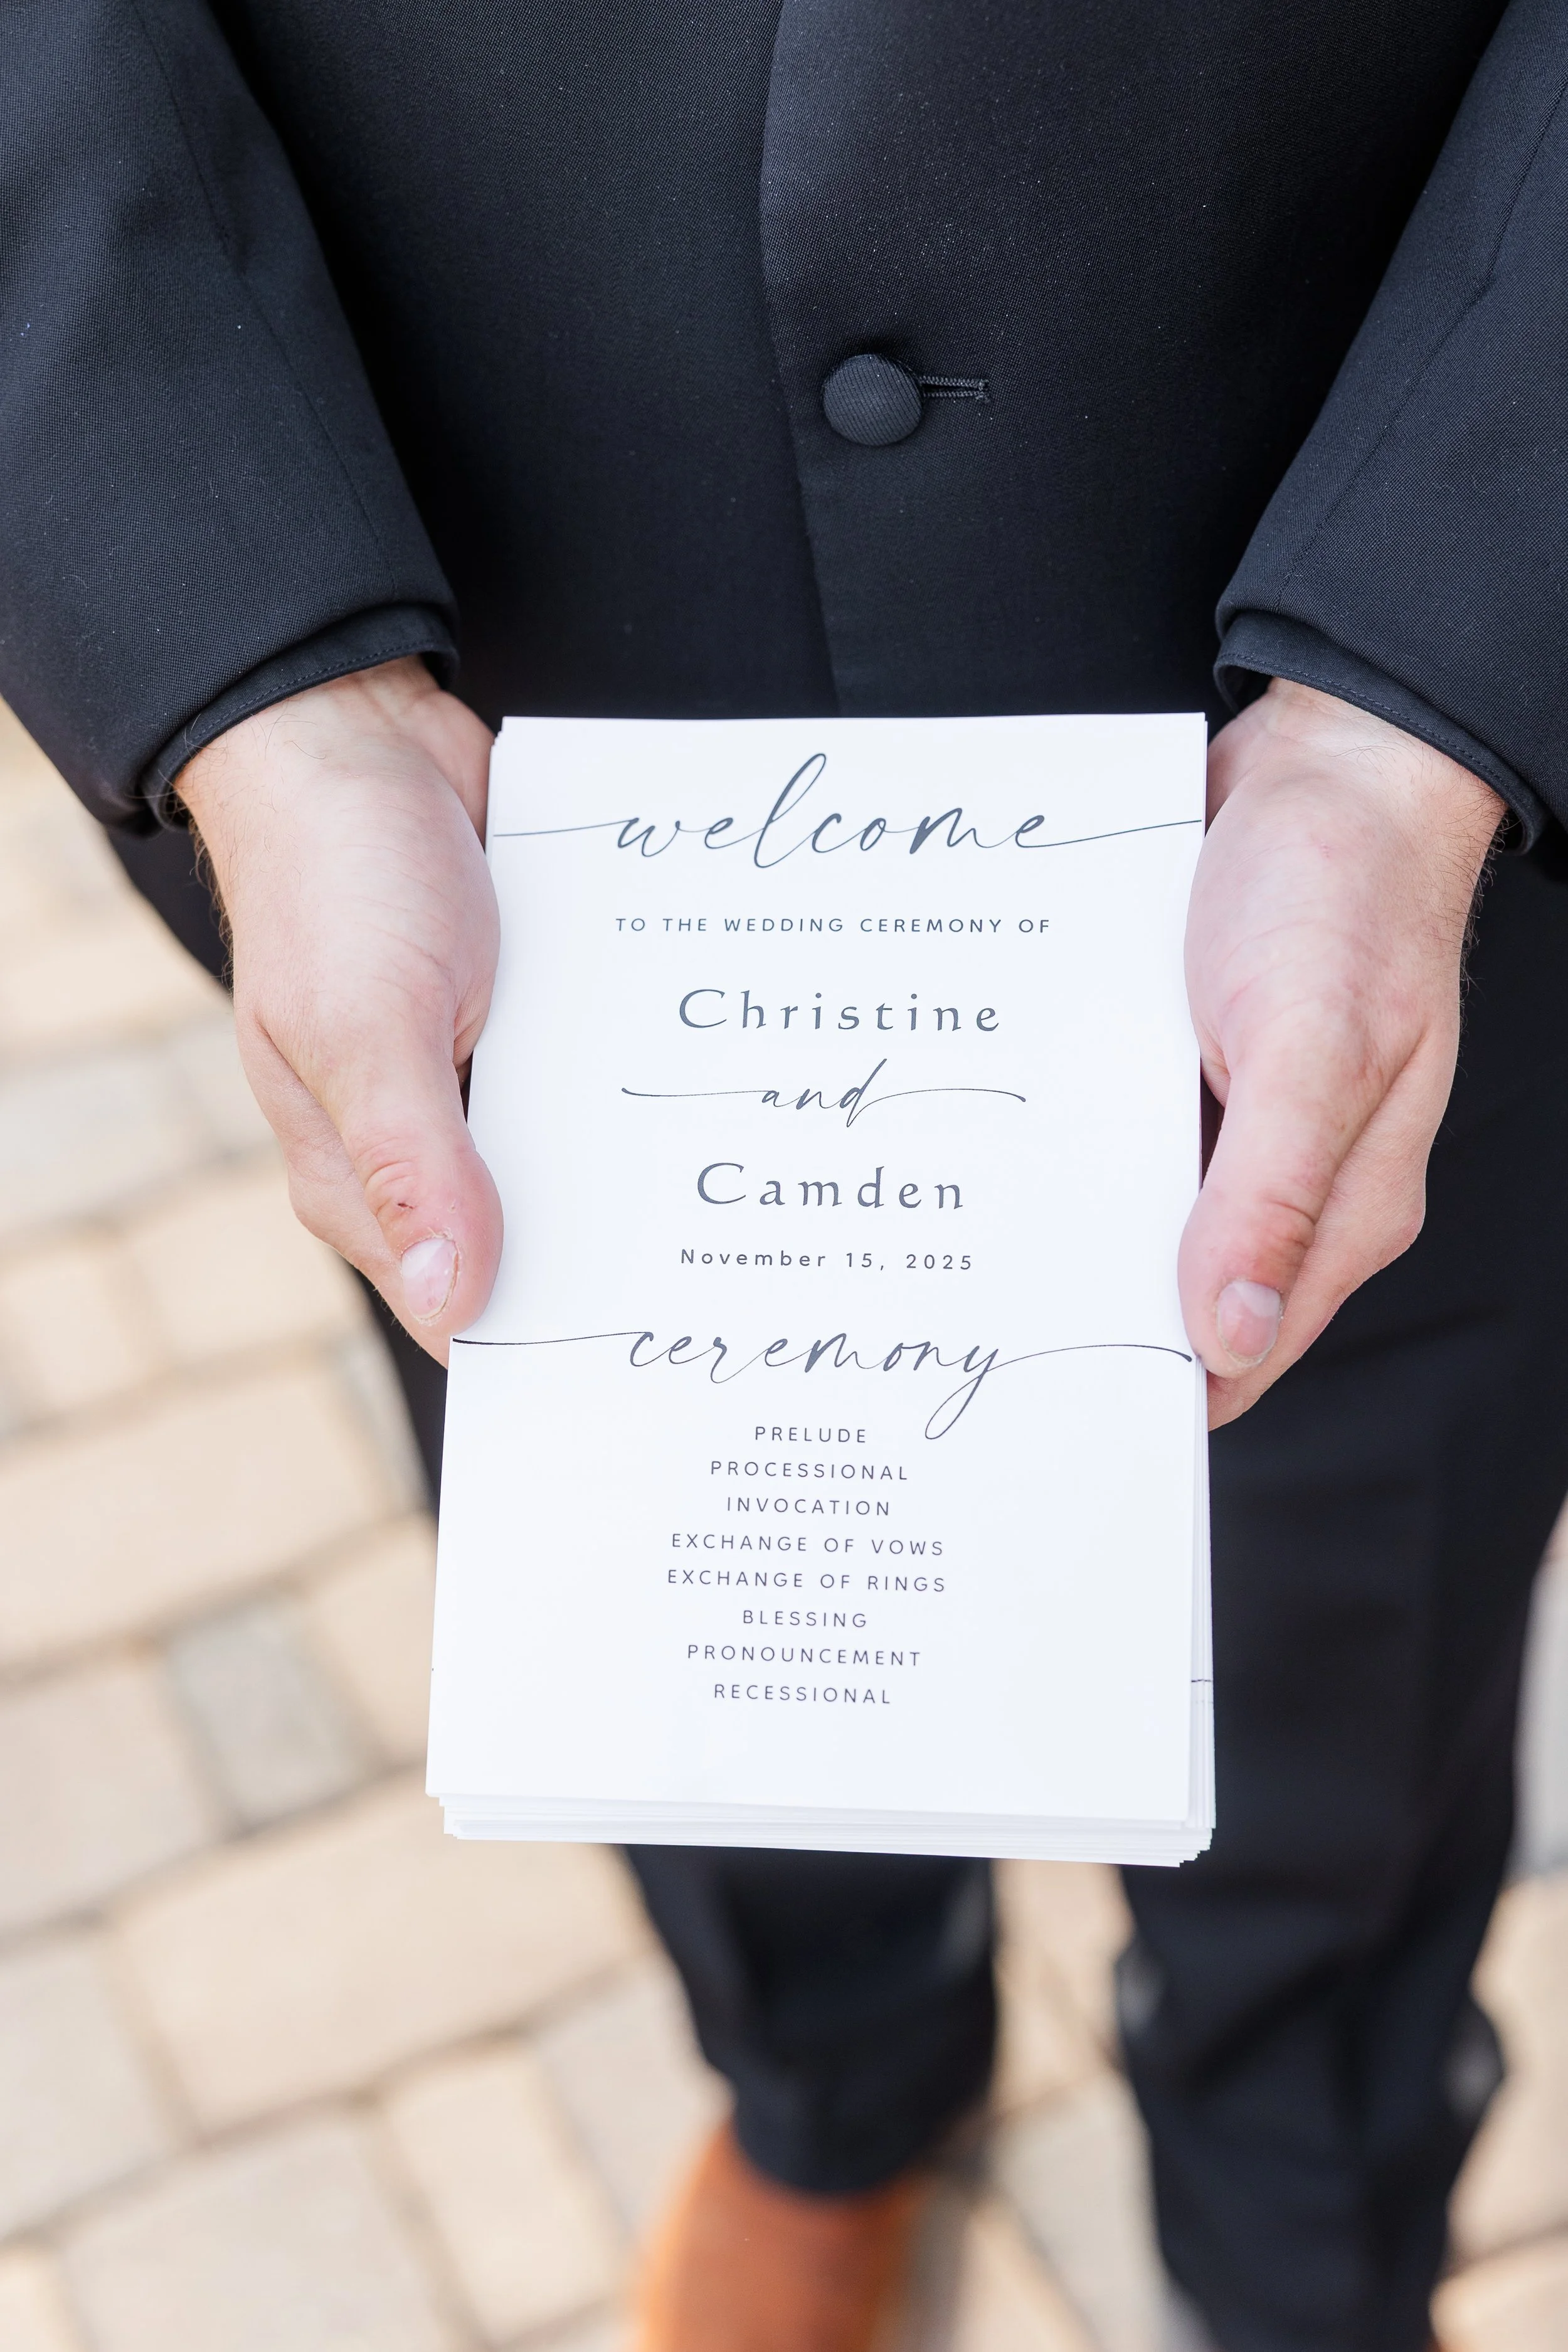 welcome
TO THE WEDDING CEREMONY OF
Christine
and
Camden
November 15, 2025
ceremony
PRELUDE
PROCESSIONAL
INVOCATION
EXCHANGE OF VOWS
EXCHANGE OF RINGS
BLESSING
PRONOUNCEMENT
RECESSIONAL